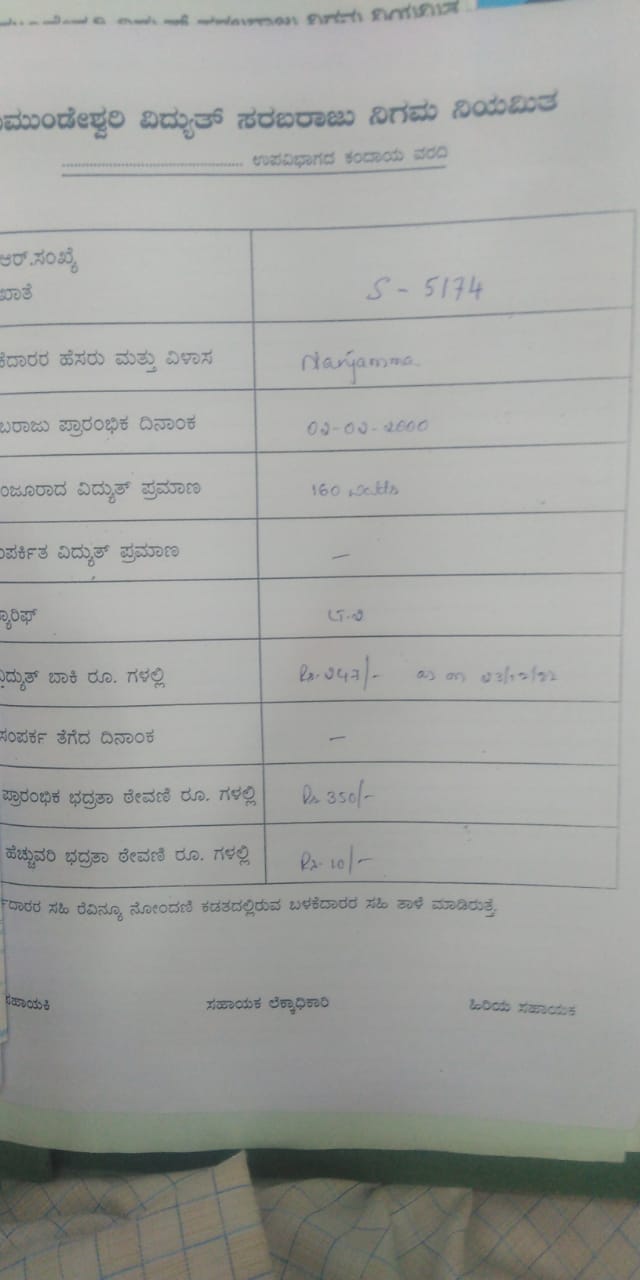 ವಿದ್ಯುತ್ ಸರಬರಾಜು ನಿಗಮ ನಿಯಮಿತ
ಉಪವಿಭಾಗದ ಕಂದಾಯ ವರದಿ
ಆರ್.ಸಂಖ್ಯೆ
ಖಾತೆ
S - 5174
ಹೆಸರು ಮತ್ತು ವಿಳಾಸ
Nanjamma
ಪ್ರಾರಂಭಿಕ ದಿನಾಂಕ 02-02-2000
ವಿದ್ಯುತ್ ಪ್ರಮಾಣ 160 watts
ವಿದ್ಯುತ್ ಪ್ರಮಾಣ —
ಬಾಕಿ ರೂ. ಗಳಲ್ಲಿ Rs. 247/- as on
ಸಂಪರ್ಕ ತೆಗೆದ ದಿನಾಂಕ —
ಪ್ರಾರಂಭಿಕ ಭದ್ರತಾ ಠೇವಣಿ ರೂ. ಗಳಲ್ಲಿ Rs. 350/-
ಹೆಚ್ಚುವರಿ ಭದ್ರತಾ ಠೇವಣಿ ರೂ. ಗಳಲ್ಲಿ Rs. 10/-
ಸಹಿ ರೆವಿನ್ಯೂ ನೋಂದಣಿ ಕಡತದಲ್ಲಿರುವ ಬಳಕೆದಾರರ ಸಹಿ ತಾಳೆ ಮಾಡಿರುತ್ತೆ.
ಸಹಾಯಕಿ ಸಹಾಯಕ ಲೆಕ್ಕಾಧಿಕಾರಿ ಹಿರಿಯ ಸಹಾಯಕ